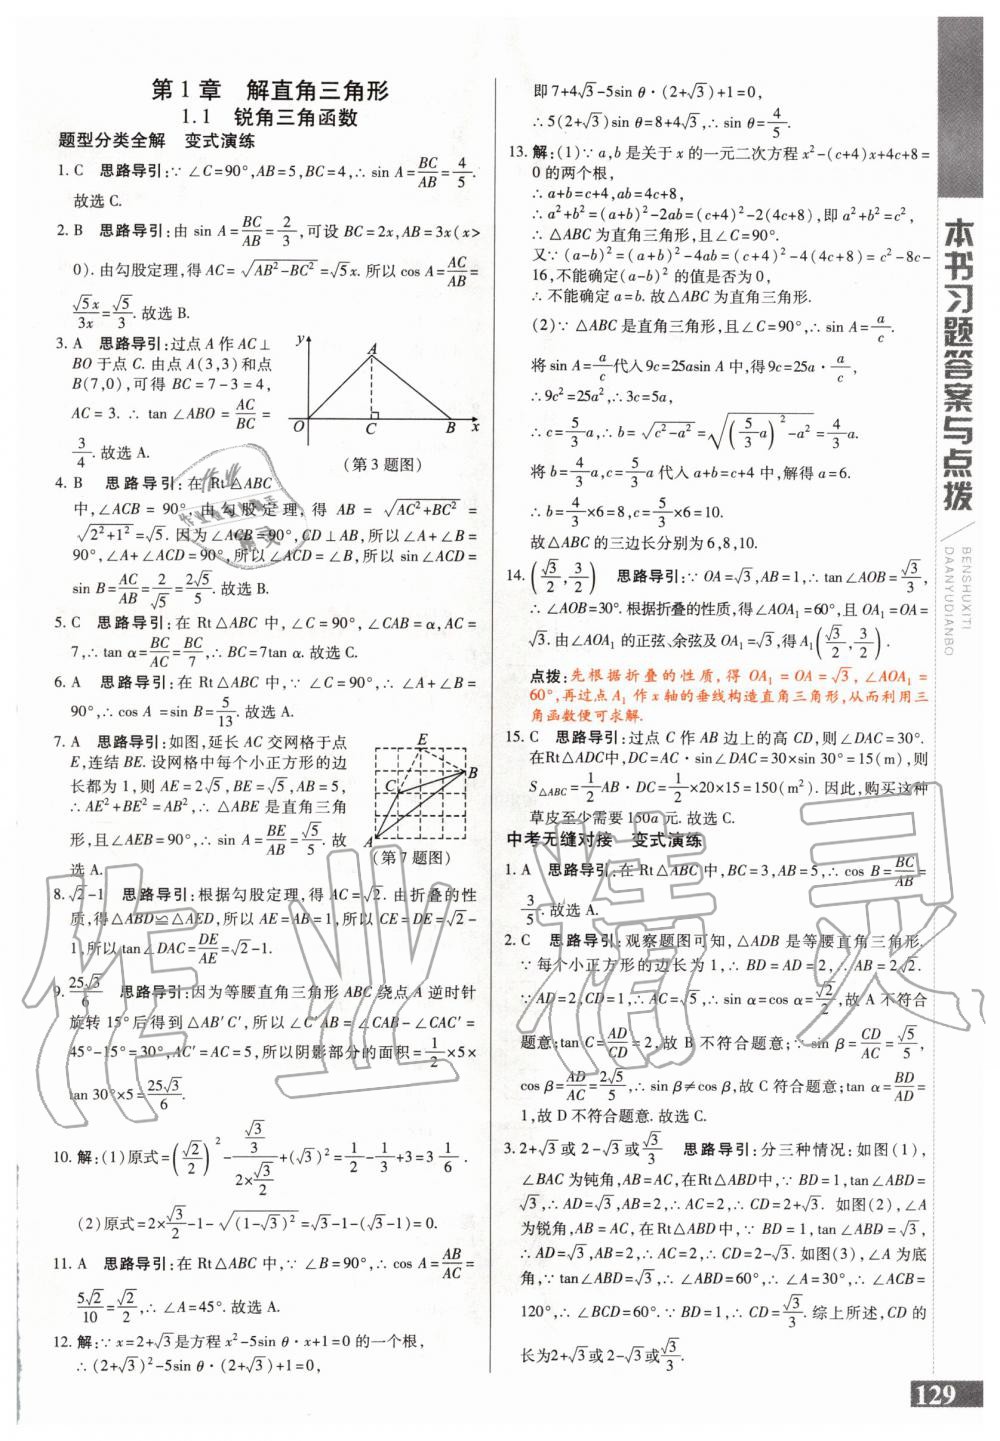 第1章 解直角三角形
1.1 锐角三角函数
题型分类全解 变式演练
1. C 思路导引:∵∠C=90°,AB=5,BC=4,∴sin A=BC/AB=4/5.
故选C.
2. B 思路导引:由 sin A=BC/AB=2/3,可设 BC=2x,AB=3x(x>
0). 由勾股定理,得 AC=√(AB²-BC²)=√5x. 所以 cos A=AC/AB=
√5x/3x=√5/3. 故选 B.
3. A 思路导引:过点 A 作 AC⊥
BO 于点 C. 由点 A(3,3)和点
B(7,0),可得 BC=7-3=4,
AC=3. ∴tan∠ABO=AC/BC=
3/4. 故选 A.
y
A
O C B x
(第3题图)
4. B 思路导引:在 Rt△ABC
中,∠ACB=90°,由勾股定理,得 AB=√(AC²+BC²)=
√(2²+1²)=√5. 因为∠ACB=90°,CD⊥AB,所以∠A+∠B=
90°,∠A+∠ACD=90°,所以∠ACD=∠B,所以 sin∠ACD=
sin B=AC/AB=2/√5=2√5/5. 故选 B.
5. C 思路导引:在 Rt△ABC 中,∠C=90°,∠CAB=α,AC=
7,∴tan α=BC/AC=BC/7,∴BC=7tan α. 故选 C.
6. A 思路导引:在 Rt△ABC 中,∵∠C=90°,∴∠A+∠B=
90°,∴cos A=sin B=5/13. 故选 A.
7. A 思路导引:如图,延长 AC 交网格于点
E,连结 BE. 设网格中每个小正方形的边
长都为 1,则 AE=2√5,BE=√5,AB=5,
∴AE²+BE²=AB²,∴△ABE 是直角三角
形,且∠AEB=90°,∴sin A=BE/AB=√5/5. 故
选 A.
E
B
C
A
(第7题图)
8. √2-1 思路导引:根据勾股定理,得 AC=√2. 由折叠的性
质,得△ABD≌△AED,所以 AE=AB=1,所以 CE=DE=√2-
1,所以 tan∠DAC=DE/AE=√2-1.
9. 25√3/6 思路导引:因为等腰直角三角形 ABC 绕点 A 逆时针
旋转 15°后得到△AB′C′,所以∠C′AB=∠CAB-∠CAC′=
45°-15°=30°,AC′=AC=5,所以阴影部分的面积=1/2×5×
tan 30°×5=25√3/6.
10. 解:(1)原式=(√2/2)²-(√3/3)/(2×√3/2)+(√3)²=1/2-1/3+3=3 1/6.
(2)原式=2×√3/2-1-√((1-√3)²)=√3-1-(√3-1)=0.
11. A 思路导引:在 Rt△ABC 中,∵∠B=90°,∴cos A=AB/AC=
5√2/10=√2/2,∴∠A=45°. 故选 A.
12. 解:∵x=2+√3是方程 x²-5sin θ·x+1=0 的一个根,
∴(2+√3)²-5sin θ·(2+√3)+1=0,
即 7+4√3-5sin θ·(2+√3)+1=0,
∴5(2+√3)sin θ=8+4√3,∴sin θ=4/5.
13. 解:(1)∵a,b 是关于 x 的一元二次方程 x²-(c+4)x+4c+8=
0 的两个根,
∴a+b=c+4,ab=4c+8,
∴a²+b²=(a+b)²-2ab=(c+4)²-2(4c+8),即 a²+b²=c²,
∴△ABC 为直角三角形,且∠C=90°.
又∵(a-b)²=(a+b)²-4ab=(c+4)²-4(4c+8)=c²-8c-
16,不能确定(a-b)²的值是否为 0,
∴不能确定 a=b. 故△ABC 为直角三角形.
(2)∵△ABC 是直角三角形,且∠C=90°,∴sin A=a/c.
将 sin A=a/c代入 9c=25asin A 中,得 9c=25a×a/c,
∴9c²=25a²,∴3c=5a,
∴c=5/3a,∴b=√(c²-a²)=√((5/3a)²-a²)=4/3a.
将 b=4/3a,c=5/3a 代入 a+b+c=24 中,解得 a=6.
∴b=4/3×6=8,c=5/3×6=10.
故△ABC 的三边长分别为 6,8,10.
14. (√3/2,3/2) 思路导引:∵OA=√3,AB=1,∴tan∠AOB=√3/3,
∴∠AOB=30°. 根据折叠的性质,得∠AOA₁=60°,且 OA₁=OA=
√3. 由∠AOA₁ 的正弦、余弦及 OA₁=√3,得 A₁(√3/2,3/2).
点拨:先根据折叠的性质,得 OA₁=OA=√3,∠AOA₁=
60°,再过点 A₁ 作 x 轴的垂线构造直角三角形,从而利用三
角函数便可求解.
15. C 思路导引:过点 C 作 AB 边上的高 CD,则∠DAC=30°.
在Rt△ADC中,DC=AC·sin∠DAC=30×sin 30°=15(m),则
S△ABC=1/2AB·DC=1/2×20×15=150(m²). 因此,购买这种
草皮至少需要 150a 元. 故选 C.
中考无缝对接 变式演练
1. A 思路导引:∵在 Rt△ABC 中,BC=3,AB=5,∴cos B=BC/AB=
3/5. 故选 A.
2. C 思路导引:观察题图可知,△ADB 是等腰直角三角形.
∵每个小正方形的边长为 1,∴BD=AD=2,∴AB=2√2.
∵AD=2,CD=1,∴AC=√5,∴sin α=cos α=√2/2,故 A 不符合
题意;tan C=AD/CD=2,故 B 不符合题意;∵sin β=CD/AC=√5/5,
cos β=AD/AC=2√5/5,∴sin β≠cos β,故 C 符合题意;tan α=BD/AD=
1,故 D 不符合题意. 故选 C.
3. 2+√3或 2-√3或√3/3 思路导引:分三种情况:如图(1),
∠BAC 为钝角,AB=AC,在Rt△ABD中,∵BD=1,tan∠ABD=
√3,∴AD=√3,AB=2,∴AC=2,∴CD=2+√3. 如图(2),∠A
为锐角,AB=AC,在Rt△ABD中,∵BD=1,tan∠ABD=√3,
∴AD=√3,AB=2,∴AC=2,∴CD=2-√3. 如图(3),∠A 为底
角,∵tan∠ABD=√3,∴∠ABD=60°,∴∠A=30°,∴∠ACB=
120°,∴∠BCD=60°. ∵BD=1,∴CD=√3/3. 综上所述,CD 的
长为2+√3或 2-√3或√3/3.
本书习题答案与点拨
BENSHUXITI
DAANYUDIANBO
129
作业精灵